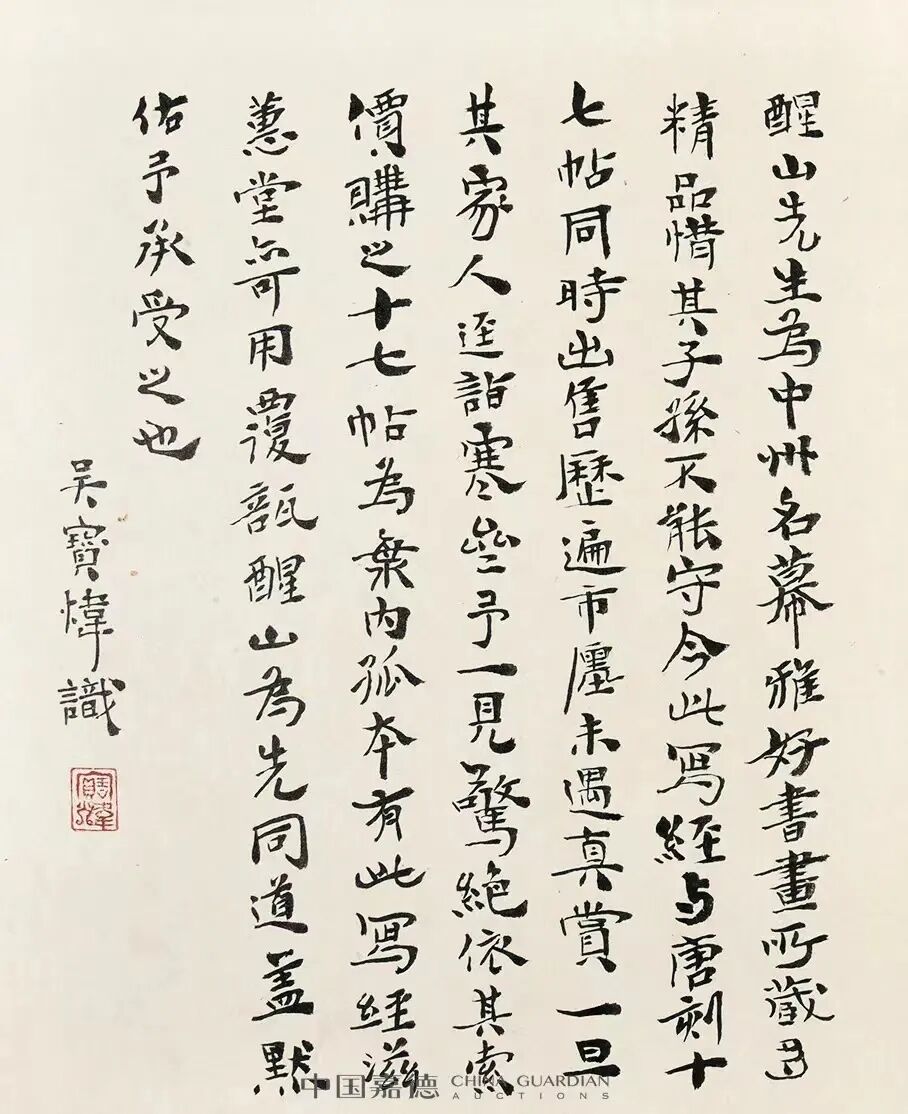 醒山先生為中州名幕雅好書畫所藏
精品惜其子孫不能守今此寫經与唐刻十
七帖同時出售歷遍市廛未遇真賞一旦
其家人逕詣寒壘予一見驚絕依其索
價購之十七帖為内孤本有此寫經滋
蕙堂亦可用覆瓿醒山為先同道蓋默
佑予承受之也
吳寶煒識
寶煒
中国嘉德 CHINA GUARDIAN AUCTIONS